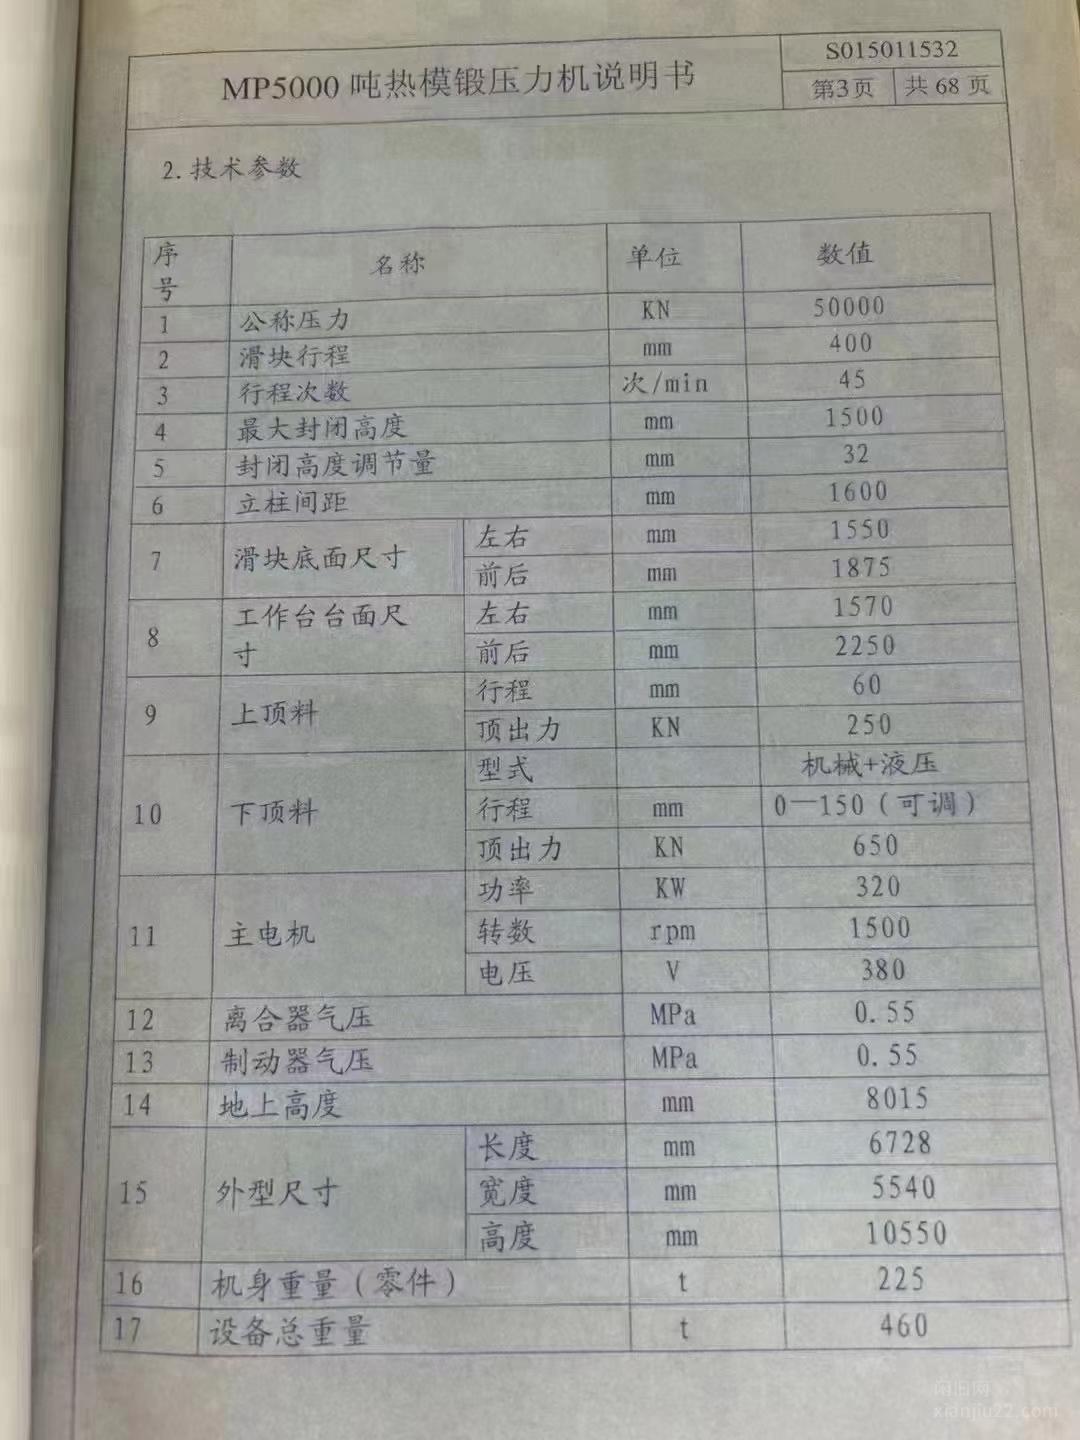 MP5000 吨热模锻压力机说明书
S015011532
第3页 共 68 页
2.技术参数
序号 名称 单位 数值
1 公称压力 KN 50000
2 滑块行程 mm 400
3 行程次数 次/min 45
4 最大封闭高度 mm 1500
5 封闭高度调节量 mm 32
6 立柱间距 mm 1600
7 滑块底面尺寸 左右 mm 1550
前后 mm 1875
8 工作台台面尺寸 左右 mm 1570
前后 mm 2250
9 上顶料 行程 mm 60
顶出力 KN 250
10 下顶料 型式 机械+液压
行程 mm 0—150(可调)
顶出力 KN 650
11 主电机 功率 KW 320
转数 rpm 1500
电压 V 380
12 离合器气压 MPa 0.55
13 制动器气压 MPa 0.55
14 地上高度 mm 8015
15 外型尺寸 长度 mm 6728
宽度 mm 5540
高度 mm 10550
16 机身重量(零件) t 225
17 设备总重量 t 460
闲旧网
xianjiu22.com